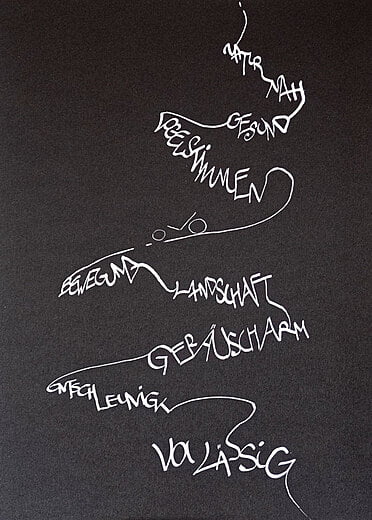 NATUR
NAH
GESUND
VOGELSTIMMEN
BEWEGUNG
LANDSCHAFT
GERÄUSCHARM
ENTSCHLEUNIGT
VOI LÄSSIG